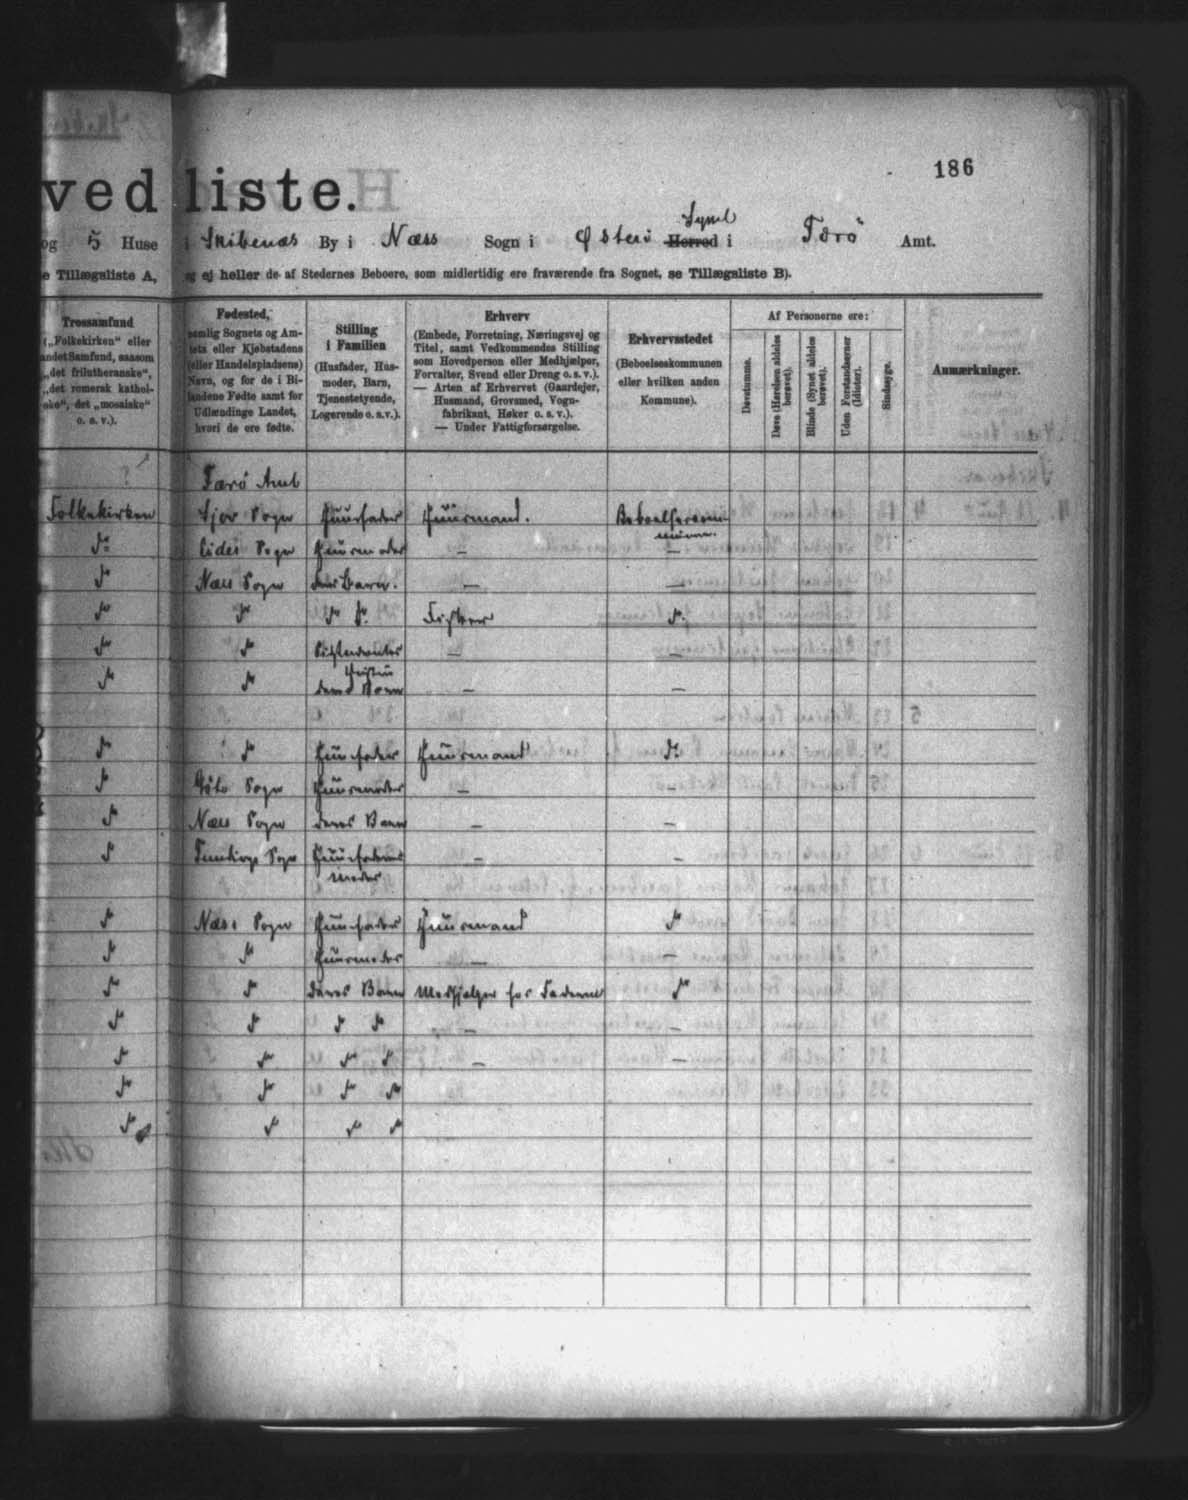 186
ved liste.
Syssel
og 5 Huse i Skibenæs By i Næss Sogn i Østerö Herred i Færö Amt.
e Tillægsliste A, og ej heller de af Stedernes Beboere, som midlertidig ere fraværende fra Sognet, se Tillægsliste B).
Trossamfund
(„Folkekirken“ eller
andet Samfund, saasom
„det frilutheranske“,
„det romersk kathol-
ske“, det „mosaiske“
o. s. v.).
Fødested,
nemlig Sognets og Am-
tets eller Kjøbstadens
(eller Handelspladsens)
Navn, og for de i Bi-
landene Fødte samt for
Udlændinge Landet,
hvori de ere fødte.
Stilling
i Familien
(Husfader, Hus-
moder, Barn,
Tjenestetyende,
Logerende o. s.v.).
Erhverv
(Embede, Forretning, Næringsvej og
Titel, samt Vedkommendes Stilling
som Hovedperson eller Medhjælper,
Forvalter, Svend eller Dreng o.s.v.).
— Arten af Erhvervet (Gaardejer,
Husmand, Grovsmed, Vogn-
fabrikant, Høker o. s. v.).
— Under Fattigforsørgelse.
Erhvervsstedet
(Beboelseskommunen
eller hvilken anden
Kommune).
Af Personerne ere:
Døvstumme.
Døve (Hørelsen aldeles
berøvet).
Blinde (Synet aldeles
berøvet).
Uden Forstandsevner
(Idioter).
Sindssyge.
Anmærkninger.
Færö Amt
Folkekirken Sjov Sogn Huusfader Huusmand. Beboelseskom-
munen.
do Eides Sogn Huusmoder — —
do Næs Sogn deres Barn. — —
do do do do Fisker do
do do — —
do do deres Barn — —
do do Huusfader Huusmand do
do Göte Sogn Huusmoder — —
do Næs Sogn deres Barn — —
do Sogn Huusfaderens
moder — —
do Næs Sogn Huusfader Huusmand do
do do Huusmoder — —
do do deres Barn Medhjælper for Faderen do
do do do do — —
do do do do — —
do do do do
do do do do